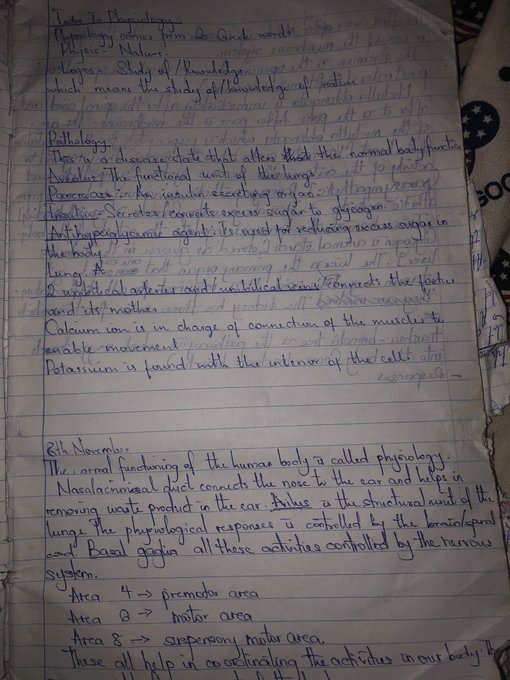 Intro To Physiology
Physiology comes from 2 Greek words:
Physis:- Nature.
Logos:- Study of/knowledge
which means the study of/knowledge of nature
Pathology
This is a disease state that alters the normal body function
Avoulus: The functional unit of the lungs
Pancrease:- An insulin secreting organ.
Insulin:- Secretes/converts excess sugar to glycogen.
Antihyperglycemic agent: its used for reducing excess sugar in
the body
Lung: A
2 umbilical arteries and umbilical veins connects the foetus
and its mother.
Calcium ion is in charge of connection of the muscles to
enable movement
Potassium is found with the interior of the cell
8th November
The ormal functioning of the human body is called physiology.
Nasalacrimal duct connects the nose to the ear and helps in
removing waste product in the ear. is the structural unit of the
lungs. The physiological responses is controlled by the brain/spinal
cord. Basal gaglia all these activities controlled by the nervous
system.
Area 4 → premotor area
Area 6 → motor area
Area 8 → motor area.
These all help in coordinating the activities in our body.